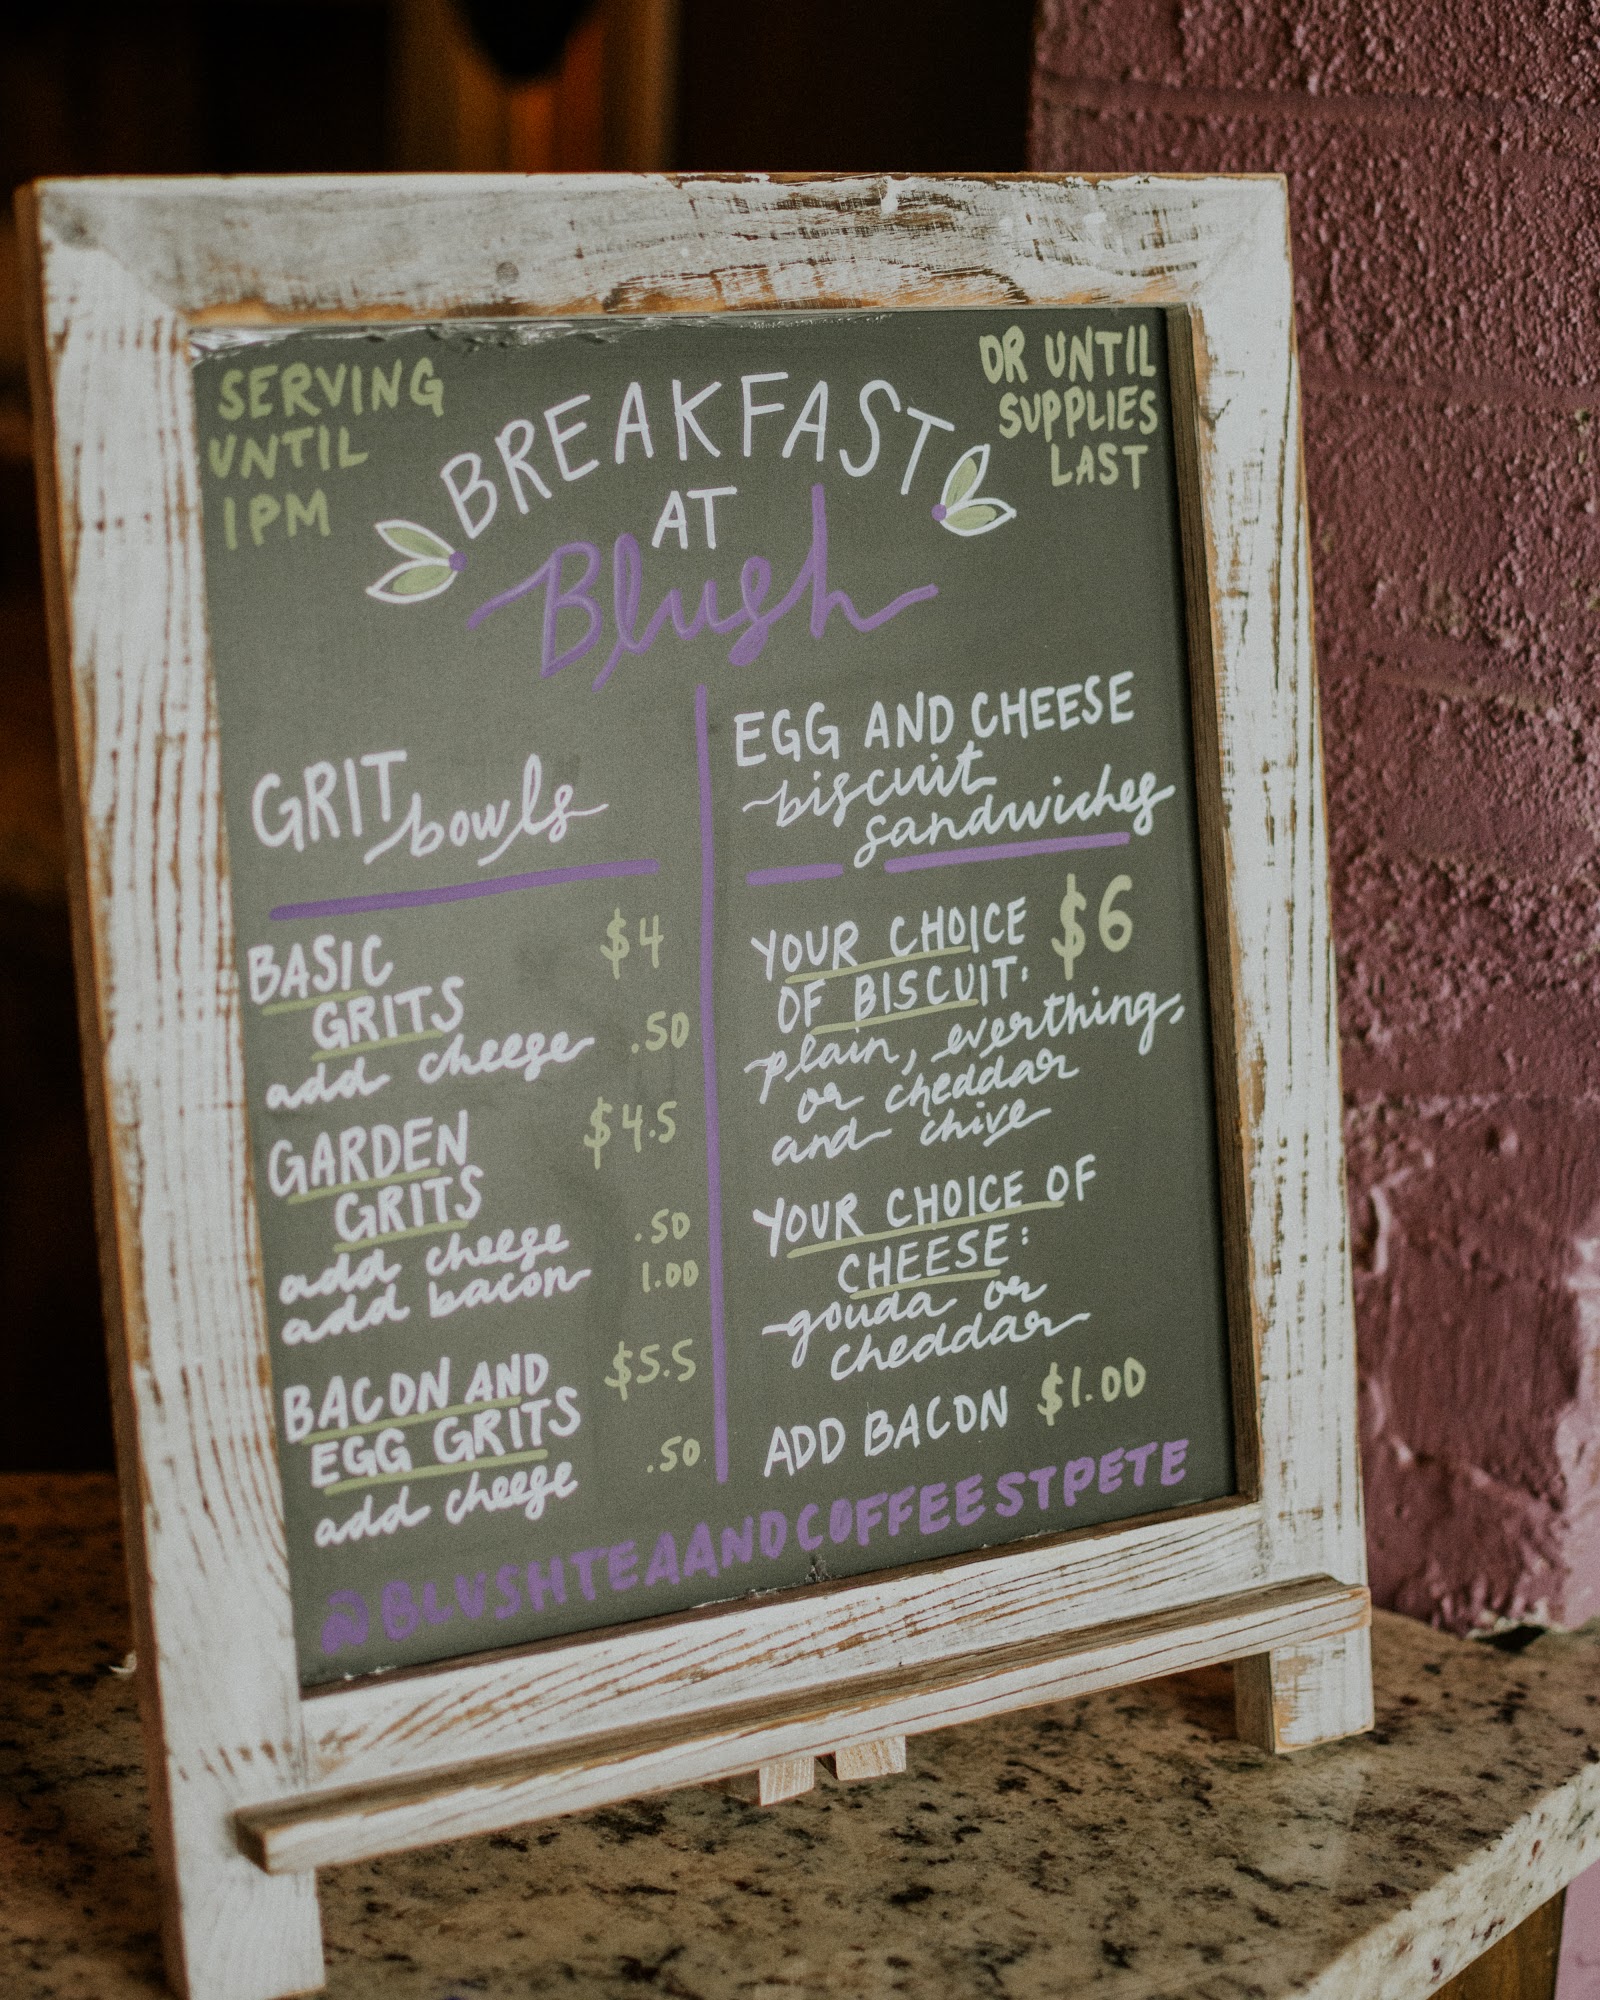 SERVING
UNTIL
1PM
OR UNTIL
SUPPLIES
LAST
BREAKFAST
AT
Blush
GRIT
bowls
BASIC $4
GRITS
add cheese .50
GARDEN $4.5
GRITS
add cheese .50
add bacon 1.00
BACON AND $5.5
EGG GRITS
add cheese .50
EGG AND CHEESE
biscuit
sandwiches
YOUR CHOICE $6
OF BISCUIT:
plain, everthing,
or cheddar
and chive
YOUR CHOICE OF
CHEESE:
gouda or
cheddar
ADD BACON $1.00
@BLUSHTEAANDCOFFEESTPETE